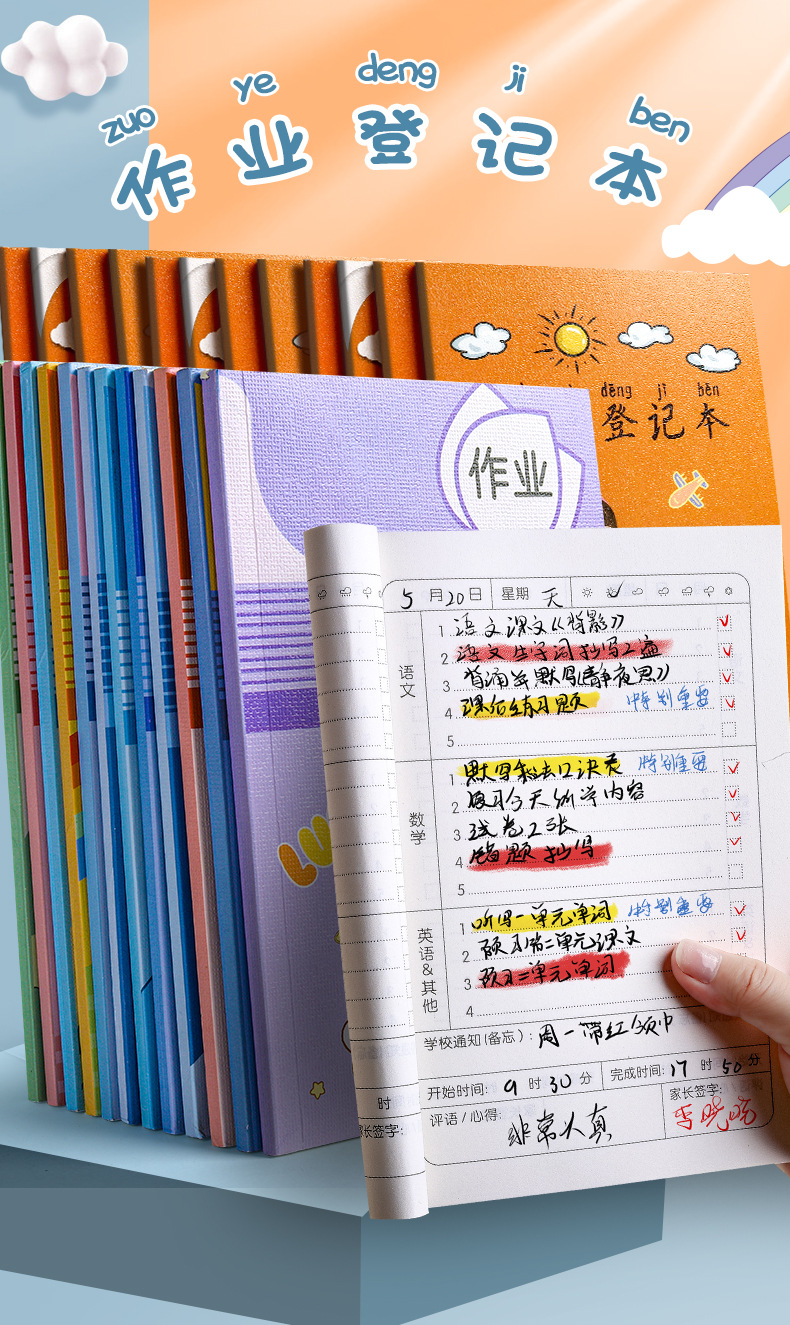 zuo ye deng ji ben
作业登记本
dēng jì běn
登记本
作业
LU
5月20日 星期 天
语文
1 语文课文《背影》
2 语文生字词抄写2遍
3 背诵并默写《静夜思》
4 课后练习题 特别重要
5
数学
1 默写乘法口诀表 特别重要
2 复习今天所学内容
3 试卷2张
4 错题抄写
5
英语&其他
1 听写一单元单词 特别重要
2 预习第二单元课文
3 预习二单元单词
4
学校通知(备忘): 周一带红领巾
开始时间: 9时30分 完成时间: 17时50分
评语/心得: 非常认真
家长签字: 李晓晓
时
家长签字: